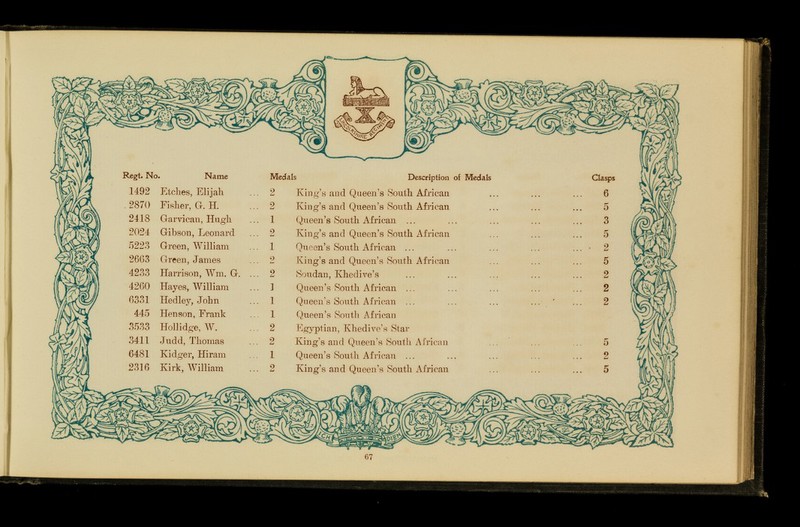 LINCOLNSHIRE REGIMENT
Regt. No. Name Medals Description of Medals Clasps
1492 Etches, Elijah ... 2 King's and Queen's South African ... ... ... 6
2870 Fisher, G. H. ... 2 King's and Queen's South African ... ... ... 5
2418 Garvican, Hugh ... 1 Queen's South African ... ... ... ... ... 3
2024 Gibson, Leonard ... 2 King's and Queen's South African ... ... ... 5
5223 Green, William ... 1 Queen's South African ... ... ... ... ... 2
2663 Green, James ... 2 King's and Queen's South African ... ... ... 5
4233 Harrison, Wm. G. ... 2 Soudan, Khedive's ... ... ... ... ... 2
4260 Hayes, William ... 1 Queen's South African ... ... ... ... ... 2
6331 Hedley, John ... 1 Queen's South African ... ... ... ... ... 2
445 Henson, Frank ... 1 Queen's South African
3533 Hollidge, W. ... 2 Egyptian, Khedive's Star
3411 Judd, Thomas ... 2 King's and Queen's South African ... ... ... 5
6481 Kidger, Hiram ... 1 Queen's South African ... ... ... ... ... 2
2316 Kirk, William ... 2 King's and Queen's South African ... ... ... 5
67